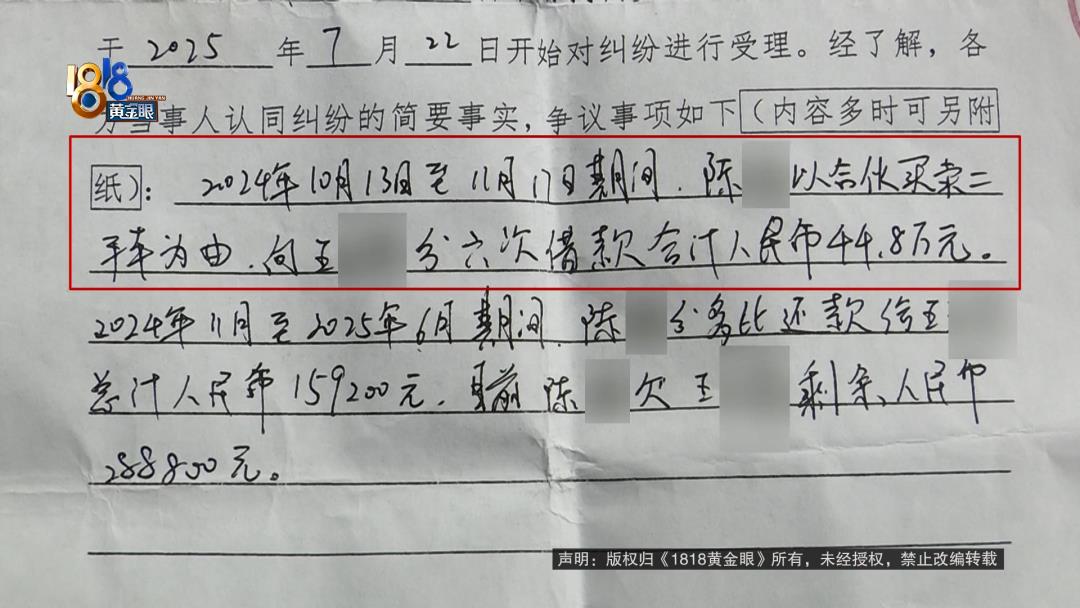 于 2025 年 7 月 22 日开始对纠纷进行受理。经了解，各
1818
HUANG JIN YAN
黄金眼
方当事人认同纠纷的简要事实，争议事项如下（内容多时可另附
纸）：2024年10月13日至11月17日期间，陈 以合伙买卖二
手车为由，向王 分六次借款合计人民币44.8万元。
2024年11月至2025年6月期间，陈 分多比还款给王
总计人民币159200元，目前陈 欠王 剩余人民币
288800元。
声明：版权归《1818黄金眼》所有，未经授权，禁止改编转载